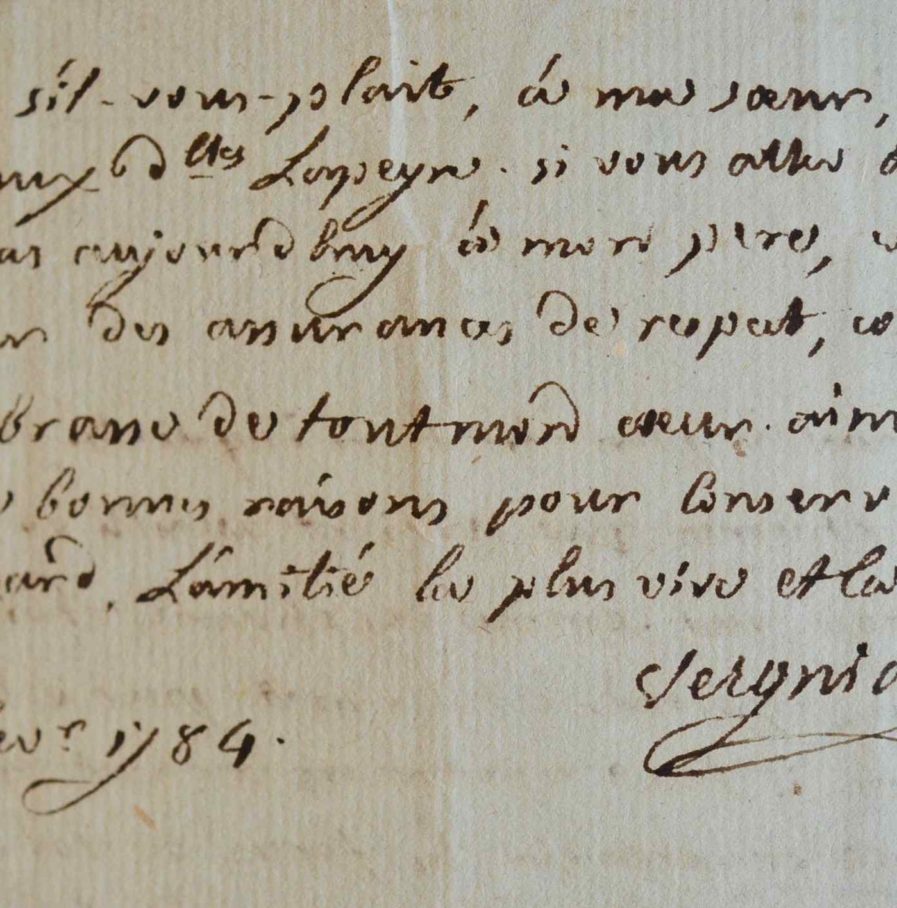 s'il-vous-plait, á ma sœur,
d^lles Lapeyre. si vous allez
aujourdhuy á mon pere,
des assurances de respect, co
brasse de tout mon cœur. aim
bonnes raisons pour conserv
ard, L'amitié la plus vive et la
Sergnia
evr 1784.